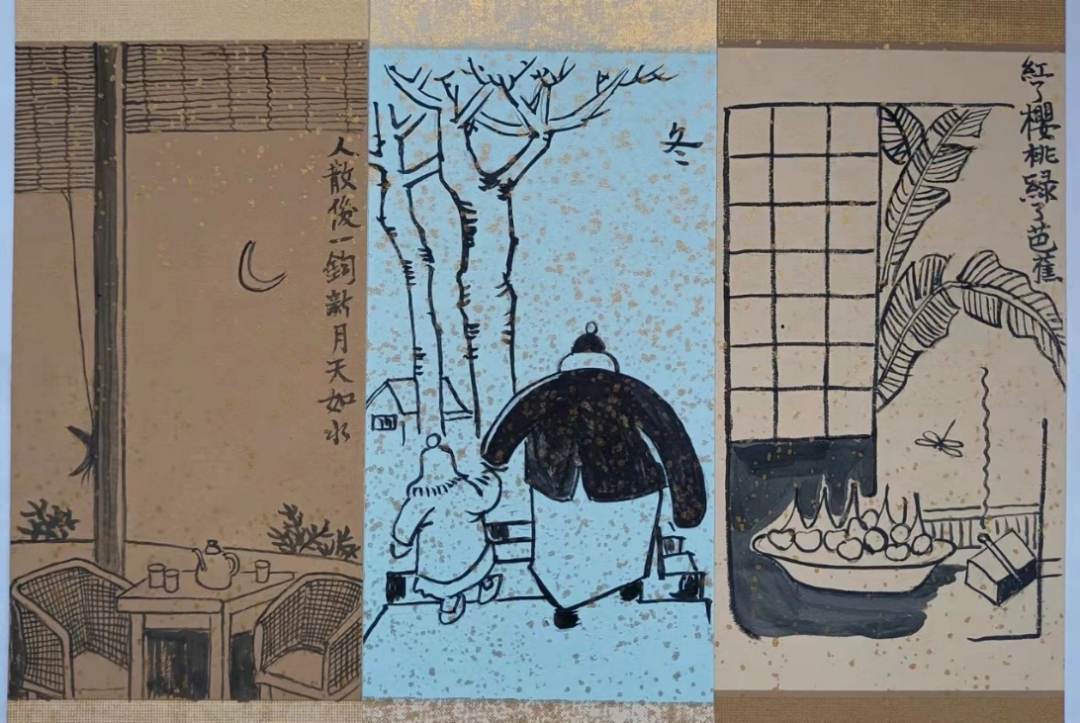 人散後一鈎新月天如水
冬
紅了櫻桃緑了芭蕉